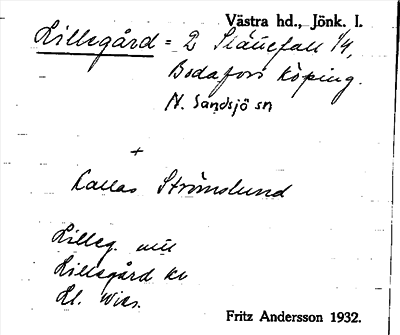 Västra hd., Jönk. l.
Lillegård = 2 Slättefall 1/4,
Bodafors köping.
N. Sandsjö sn
+
Kallas Strömslund
Lilleg. utt
Lillegård kv
Hl. Wies.
Fritz Andersson 1932.